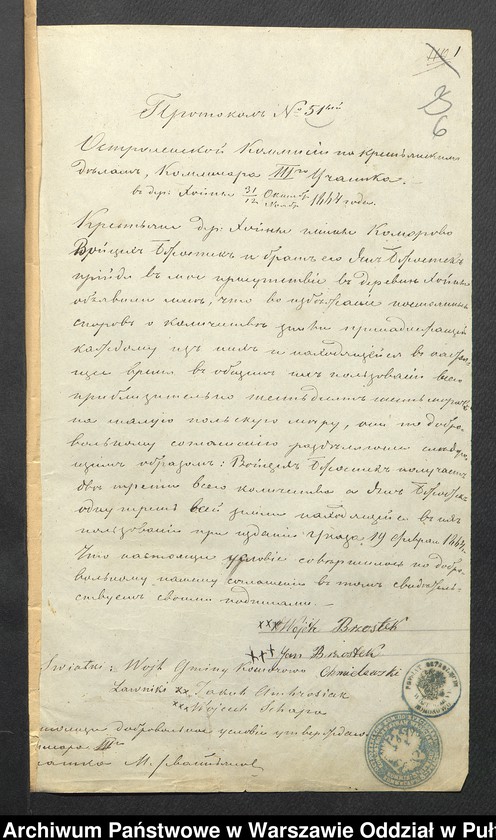 1
26
Протоколъ № 51ый
Остроленской Коммисіи по крестьянскимъ
дѣламъ, Коммисара IIIго Участка.
въ дер: Хойны 31/12 Октябр/Ноябр 1864 года.
Крестьяне дер: Хойны гмины Коморово
Войцехъ Бржостекъ и братъ его Янъ Бржостекъ
прійдя въ мое присутствіе въ деревню Хойны
объявили мнѣ, что во избѣжаніе
споровъ о количествѣ земли принадлежащей
каждому изъ нихъ и находящейся въ настоя
щее время въ общемъ ихъ пользованіи всего
приблизительно шестьдесятъ морговъ
на малую польскую мѣру, они по добро-
вольному соглашенію раздѣлили слѣдую
щимъ образомъ: Войцехъ Бржостекъ получаетъ
двѣ трети всего количества а Янъ Бржостекъ
одну треть всей земли находящейся въ ихъ
пользованіи при изданіи Указа 19 Февраля 1864.
Что настоящее условіе совершилось по добро-
вольному нашему соглашенію въ томъ свидѣтель-
ствуемъ своими подписами. —
xxx Wojćh Brzostek
+++ Jan Brzostek
Swiatki: Wojt Gminy Komorowo Chmielewski
Ławniki xx Jakub Ambrosiak
xxx Wojcieh
добровольное условіе утверждаю
IIIго
Archiwum Państwowe w Warszawie Oddział w Puł